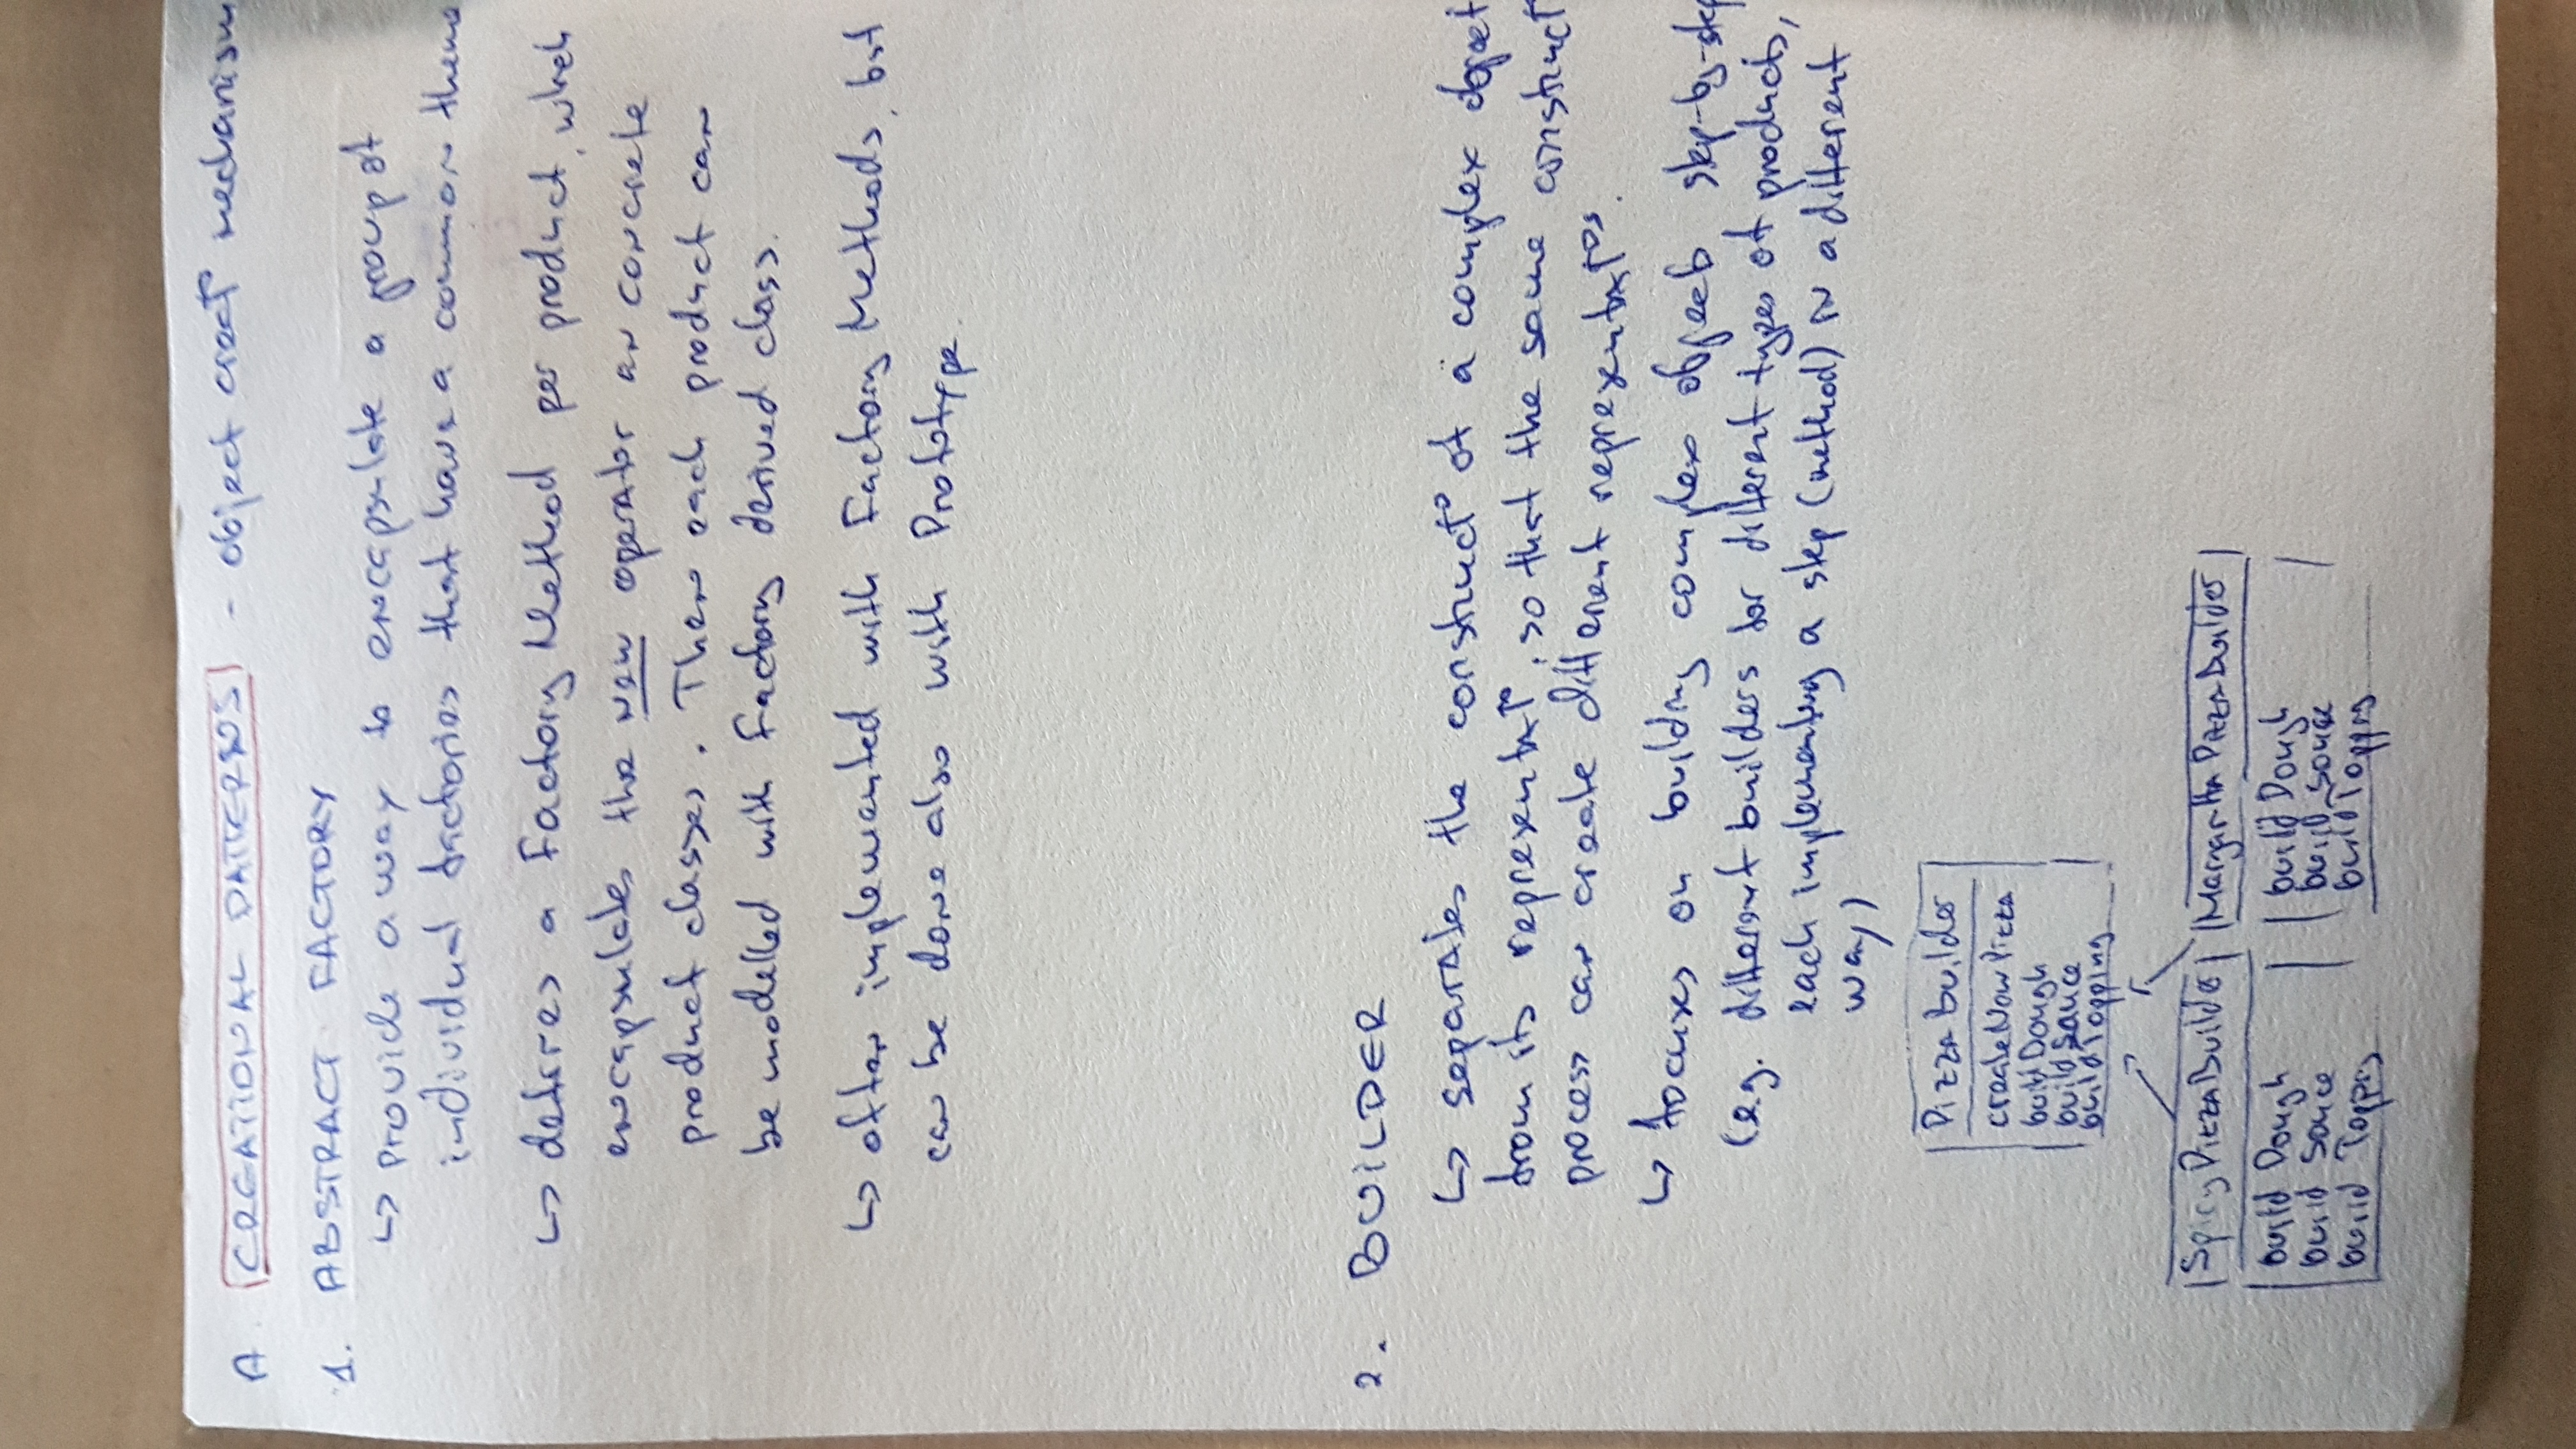 A. CREATIONAL PATTERNS - object creat° mechanism
1. ABSTRACT FACTORY
↳ provide a way to encapsulate a group of
individual factories that have a common theme
↳ defines a Factory Method per product, which
encapsulates the new operator an concrete
product classes. Then each product can
be modelled with Factory derived class.
↳ often implemented with Factory Methods, but
can be done also with Prototype.
2. BUILDER
↳ separates the construct° of a complex object
from its representat°, so that the same construct°
process can create different representat°s.
↳ focuses on building complex objects step-by-step
(e.g. different builders for different types of products,
each implementing a step (method) in a different
way)
PizzaBuilder
createNewPizza
buildDough
buildSauce
buildTopping
SpicyPizzaBuilder MargarittaPizzaBuilder
build Dough buildDough
build Sauce build Sauce
build Topping buildTopping